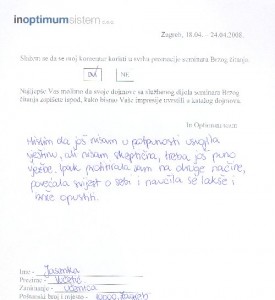 inoptimumsistem d.o.o.
Zagreb, 18.04. – 24.04.2008.
Slažem se da se ovaj komentar koristi u svrhu promocije seminara Brzog čitanja.
DA
NE
Najljepše Vas molimo da svoje dojmove sa službenog dijela seminara Brzog
čitanja zapišete ispod, kako bismo Vaše impresije uvrstili u katalog dojmova.
In Optimum team
Mislim da još nisam u potpunosti usvojila
vještinu, ali nisam skeptična, treba još puno
vježbe. Ipak profitirala sam na druge načine,
povećala svijest o sebi i naučila se lakše i
brže opustiti.
Ime - Jasenka
Prezime -
Zanimanje - učenica
Poštanski broj i mjesto - 10000 Zagreb